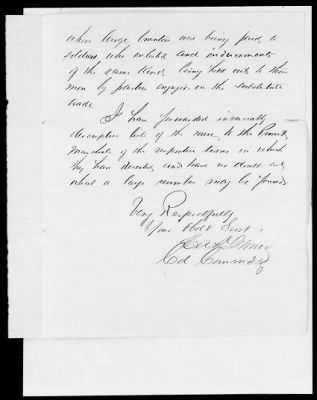 when large bounties were being paid to
soldiers who enlisted and inducements
of the same kind being held out to these
men by parties engaged in the substitute
trade.
I have forwarded invariably
descriptive lists of the men to the Provost
Marshals of the respective towns in which
they have deserted, and have no doubt but
what a large number may be found.
Very Respectfully
Your Obdt Servt.
Col Commdg